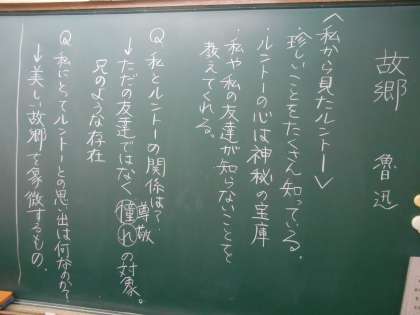 故郷 魯迅
〈私から見たルントー〉
・珍しいことをたくさん知っている。
・ルントーの心は神秘の宝庫
・私や私の友達が知らないことを
教えてくれる。
Q 私とルントーの関係は?
→ただの友達ではなく憧れの対象。
尊敬
兄のような存在
Q 私にとってルントーとの思い出は何なのか?
→美しい故郷を象徴するもの。